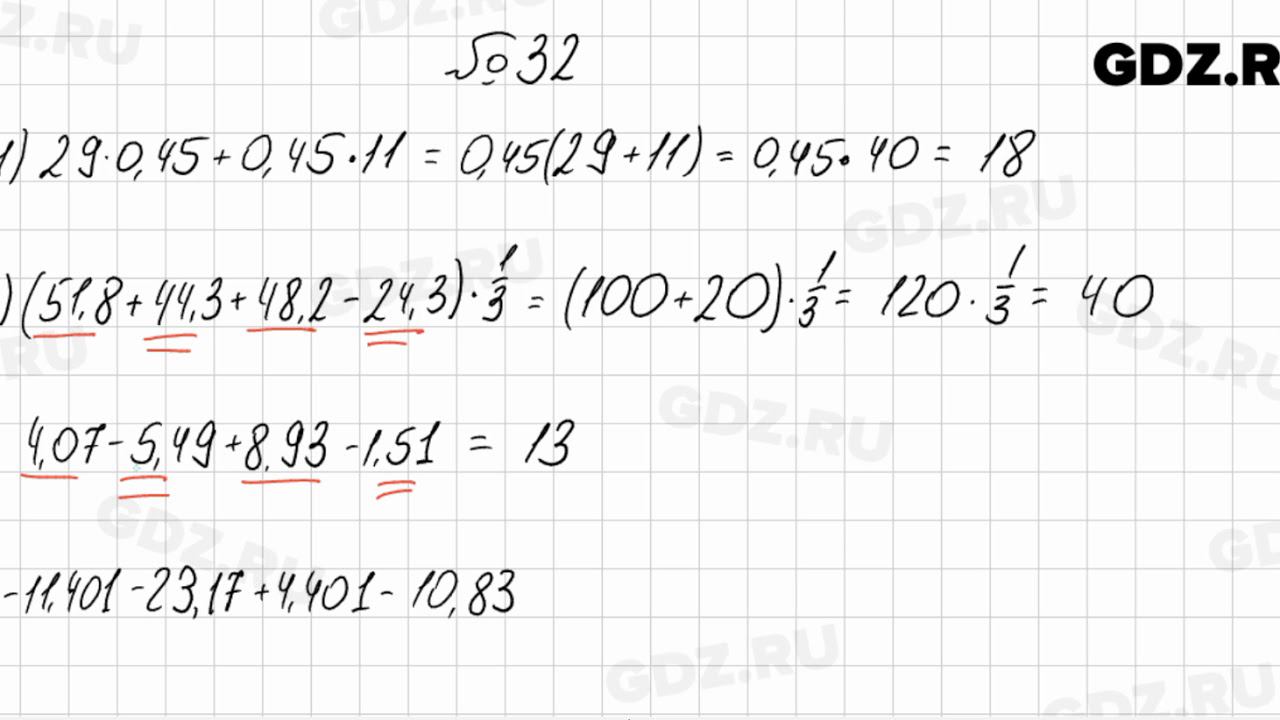 №32
GDZ.R
1) 29·0,45+0,45·11 = 0,45(29+11) = 0,45·40 = 18
)(51,8+44,3+48,2-24,3)·1/3 = (100+20)·1/3 = 120·1/3 = 40
4,07-5,49+8,93-1,51 = 13
-11,401-23,17+4,401-10,83
GDZ.RU
GDZ.RU
GDZ.RU
GDZ.RU
GDZ.RU
GDZ.RU
GDZ.RU
GDZ.RU